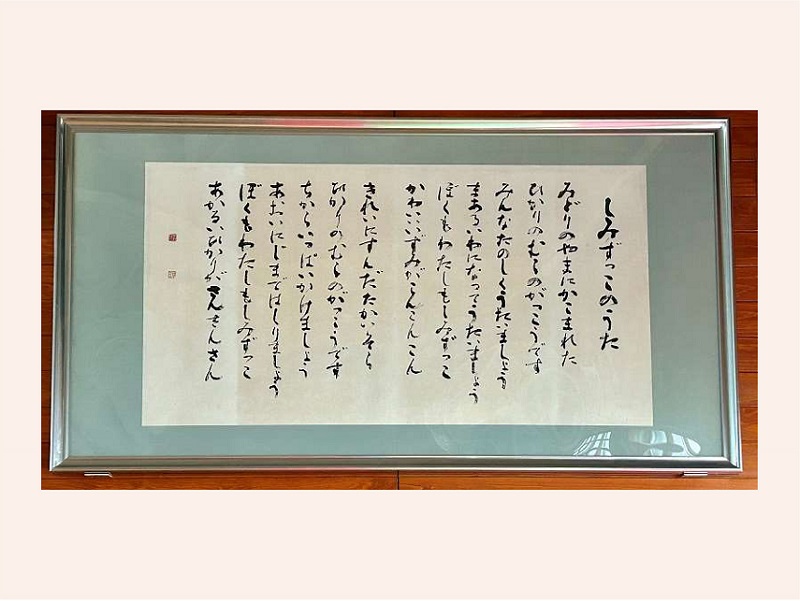 しみずっこのうた
みどりのやまにかこまれた
ひかりのむらのがっこうです
みんなたのしくうたいましょう
まあるいわになってうたいましょう
ぼくもわたしもしみずっこ
かわいいいずみがこんこんこん
きれいにすんだたかいそら
ひかりのむらのがっこうです
ちからいっぱいかけましょう
あおいにじまではしりましょう
ぼくもわたしもしみずっこ
あかるいひかりがさんさんさん